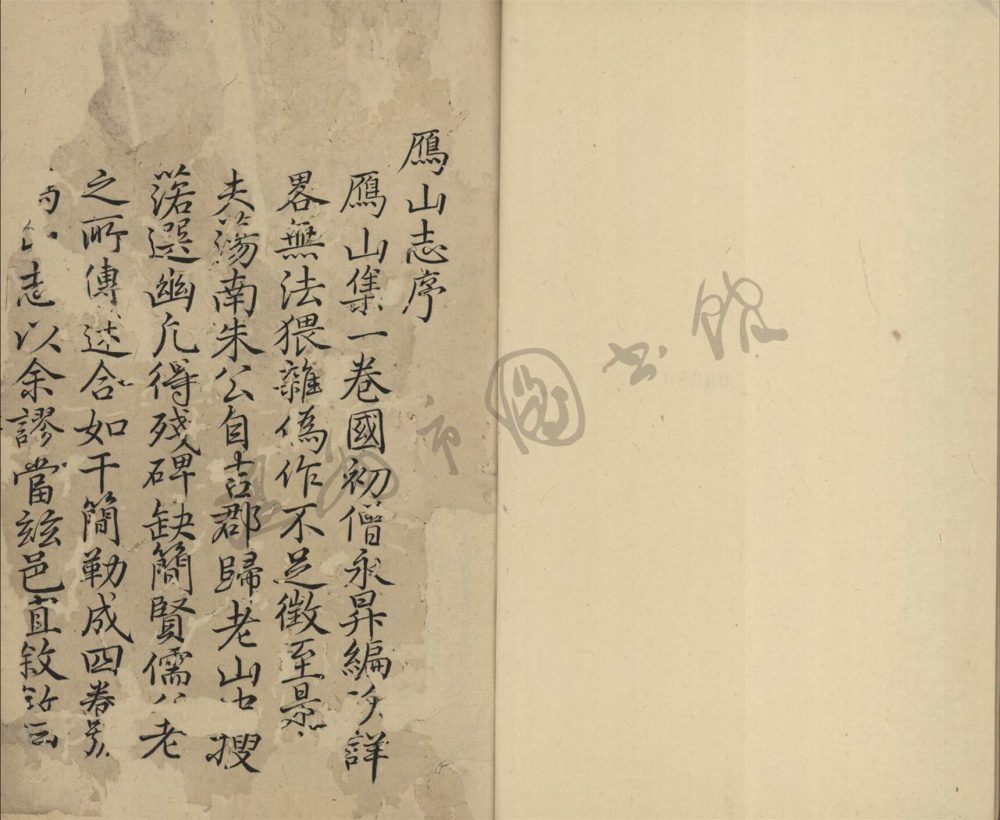 鴈山志序
鴈山集一卷國初僧永昇編次詳
畧無法猥雜偽作不足徵至景
夫蕩南朱公自吉郡歸老山中搜
渃選幽凢得殘碑缺簡賢儒 老
之所傳述合如干簡勒成四卷
志以余謬當兹邑宜敘
市圖书馆